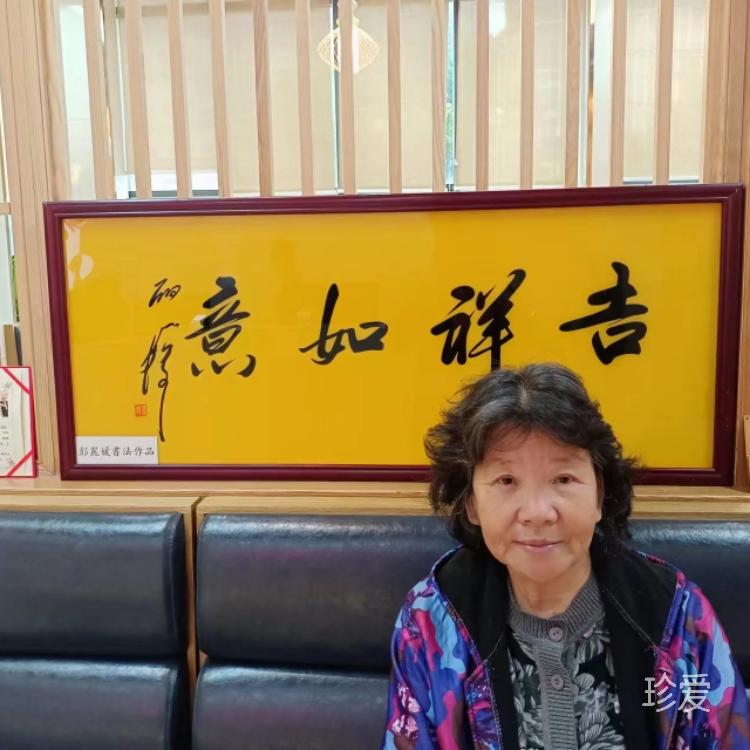 吉祥如意
彭麗媛書法作品
珍爱